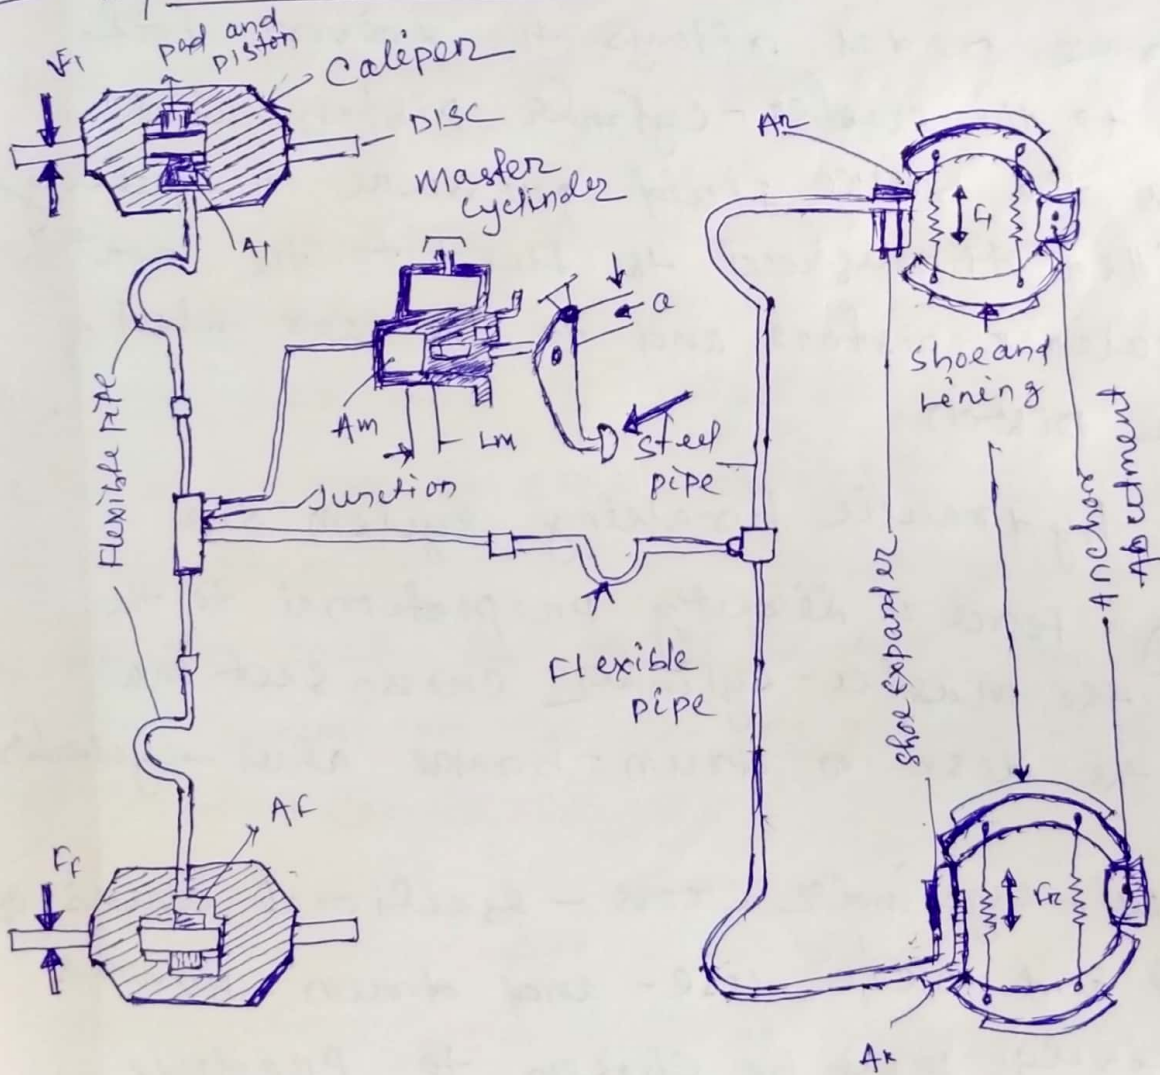 pad and
piston
Caliper
DISC
F1
A1
Master
cylinder
Am
Lm
a
Steel
pipe
Junction
Flexible pipe
Flexible
pipe
Ar
Shoe and
Lining
Shoe Expander
Anchor
Abuctment
AF
FF
FR